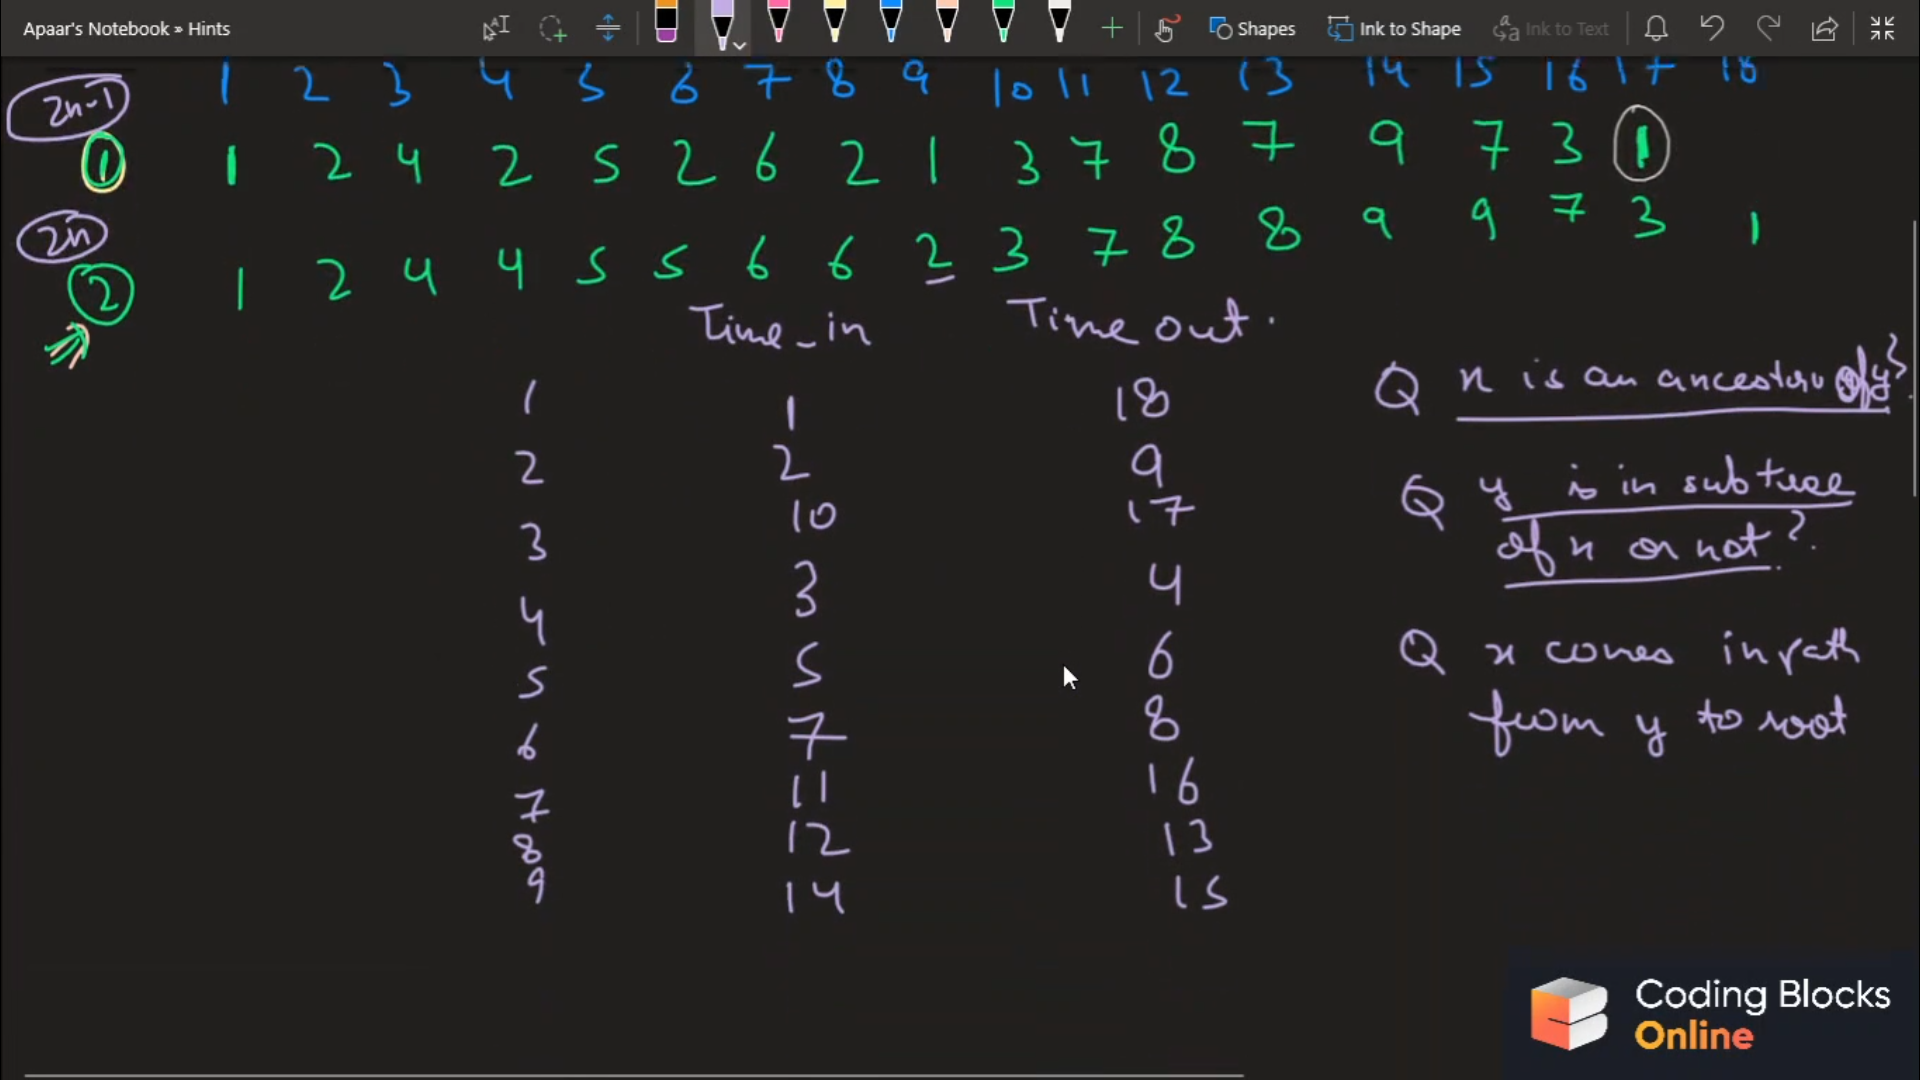 Apaar's Notebook » Hints
Shapes
Ink to Shape
Ink to Text
1 2 3 4 5 6 7 8 9 10 11 12 13 14 15 16 17 18
2n-1
1 1 2 4 2 5 2 6 2 1 3 7 8 7 9 7 3 1
2n
2 1 2 4 4 5 5 6 6 2 3 7 8 8 9 9 7 3 1
Time_in Time out.
1 1 18
2 2 9
3 10 17
4 3 4
5 5 6
6 7 8
7 11 16
8 12 13
9 14 15
Q x is an ancestor of y?
Q y is in subtree
of x or not?
Q x comes in path
from y to root
Coding Blocks
Online